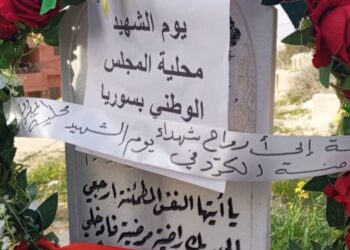 يوم الشهيد
محلية المجلس
الوطني بسوريا
إلى أرواح شهداء
في يوم الشهيد
يا أيتها النفس المطمئنة ارجعي
راضية مرضية فادخلي